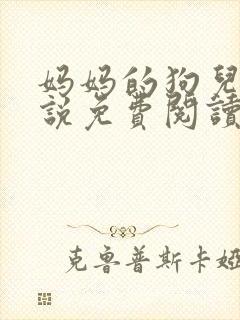 妈妈的狗兒
說免費閱讀
克鲁普斯卡娅